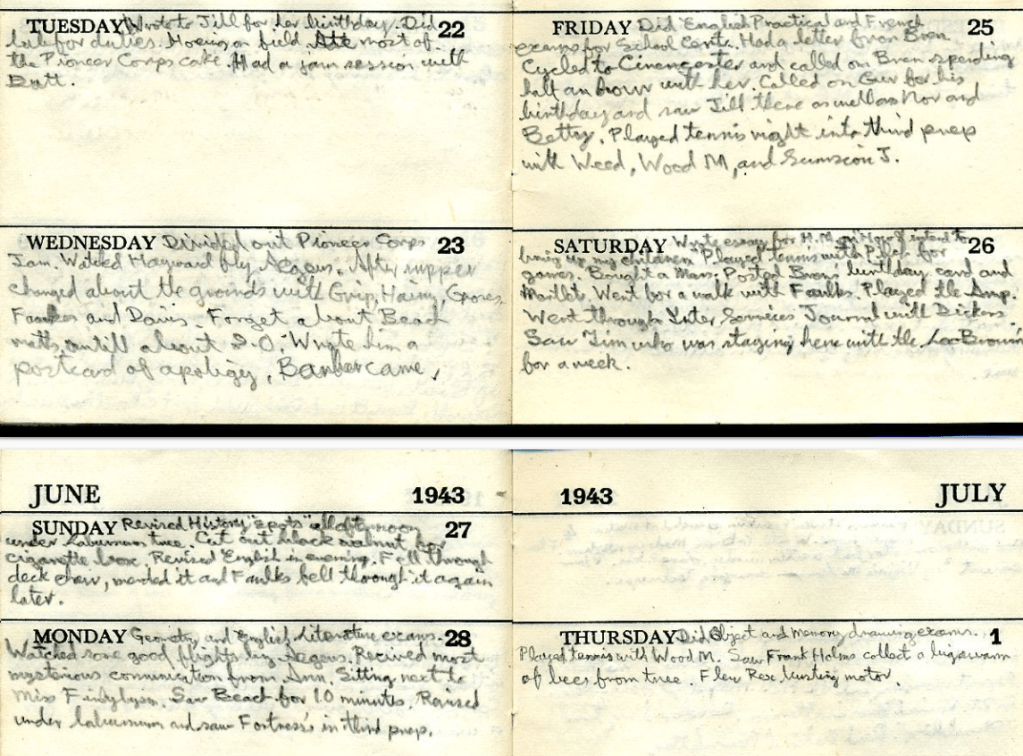 TUESDAY Wrote to Jill for her birthday. Did 22
late for duties. Hoeing on field. Ate most of
the Pioneer Corps cake. Had a jam session with
Butt.
WEDNESDAY Divided out Pioneer Corps 23
Jam. Watched Hayward fly Aegus. After supper
changed about the grounds with Grip, Haing, Groves
Faulkes and Davis. Forget about Beach
untill about 9.0. Wrote him a
postcard of apoligy, Barber came.
FRIDAY Did English Practical and French 25
exams for School Certs. Had a letter from Bren.
Cycled to Cirencester and called on Bren spending
half an hour with her. Called on Guv for his
birthday and saw Jill there as well as Nor and
Betty. Played tennis right into third prep
with Weed, Wood M, and Sumsion J.
SATURDAY Wrote essay for H.M. on How I intend to 26
bring up my children. Played tennis with for
games. Bought a Mars. Posted Bren's birthday card and
Went for a walk with Faulks. Played the Amp.
Went through Inter Services Journal with Dickens
Saw Jim who was staying here with the Lee Browns
for a week.
JUNE 1943
SUNDAY Revised History "spots" all afternoon 27
under laburnum tree. Cut out black walnut for
cigarette box. Revised English in evening. Fell through
deck chair, mended it and Faulks fell through it again
later.
MONDAY Geometry and English Literature exams. 28
Watched some good flights by Aegus. Recived most
mysterious communication from Ann. Sitting next to
Miss Saw Beach for 10 minutes. Revised
under laburnum and saw Fortress's in third prep.
1943 JULY
THURSDAY Did Object and Memory drawing exams. 1
Played tennis with Wood M. Saw Frank Holms collect a big swarm
of bees from tree. Flew Rex busting motor.